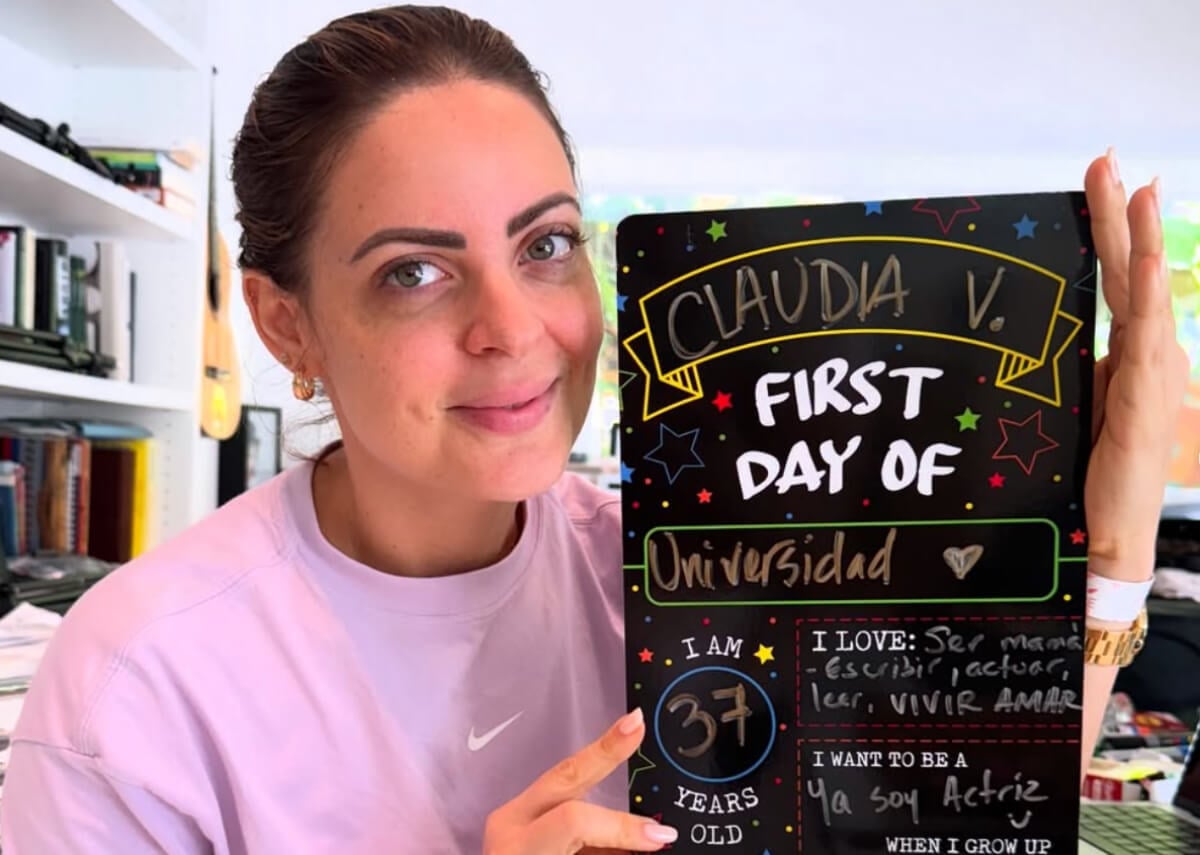 CLAUDIA V.
FIRST
DAY OF
Universidad
I AM
37
YEARS
OLD
I LOVE: Ser mamá
-Escribir, actuar,
leer, VIVIR AMAR
I WANT TO BE A
Ya soy Actriz
WHEN I GROW UP